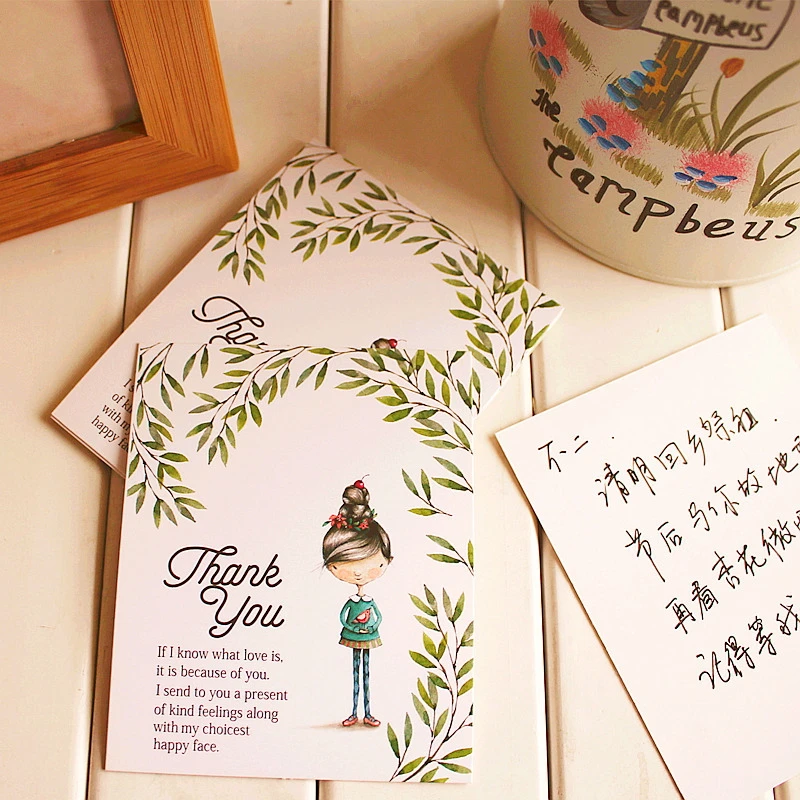 Campbeus
the
Campbeus
Tha
with m
happy fa
Thank
You
If I know what love is,
it is because of you.
I send to you a present
of kind feelings along
with my choicest
happy face.
不二.
清明回乡祭祖.
节后与尔故地
再看杏花微
记得等我